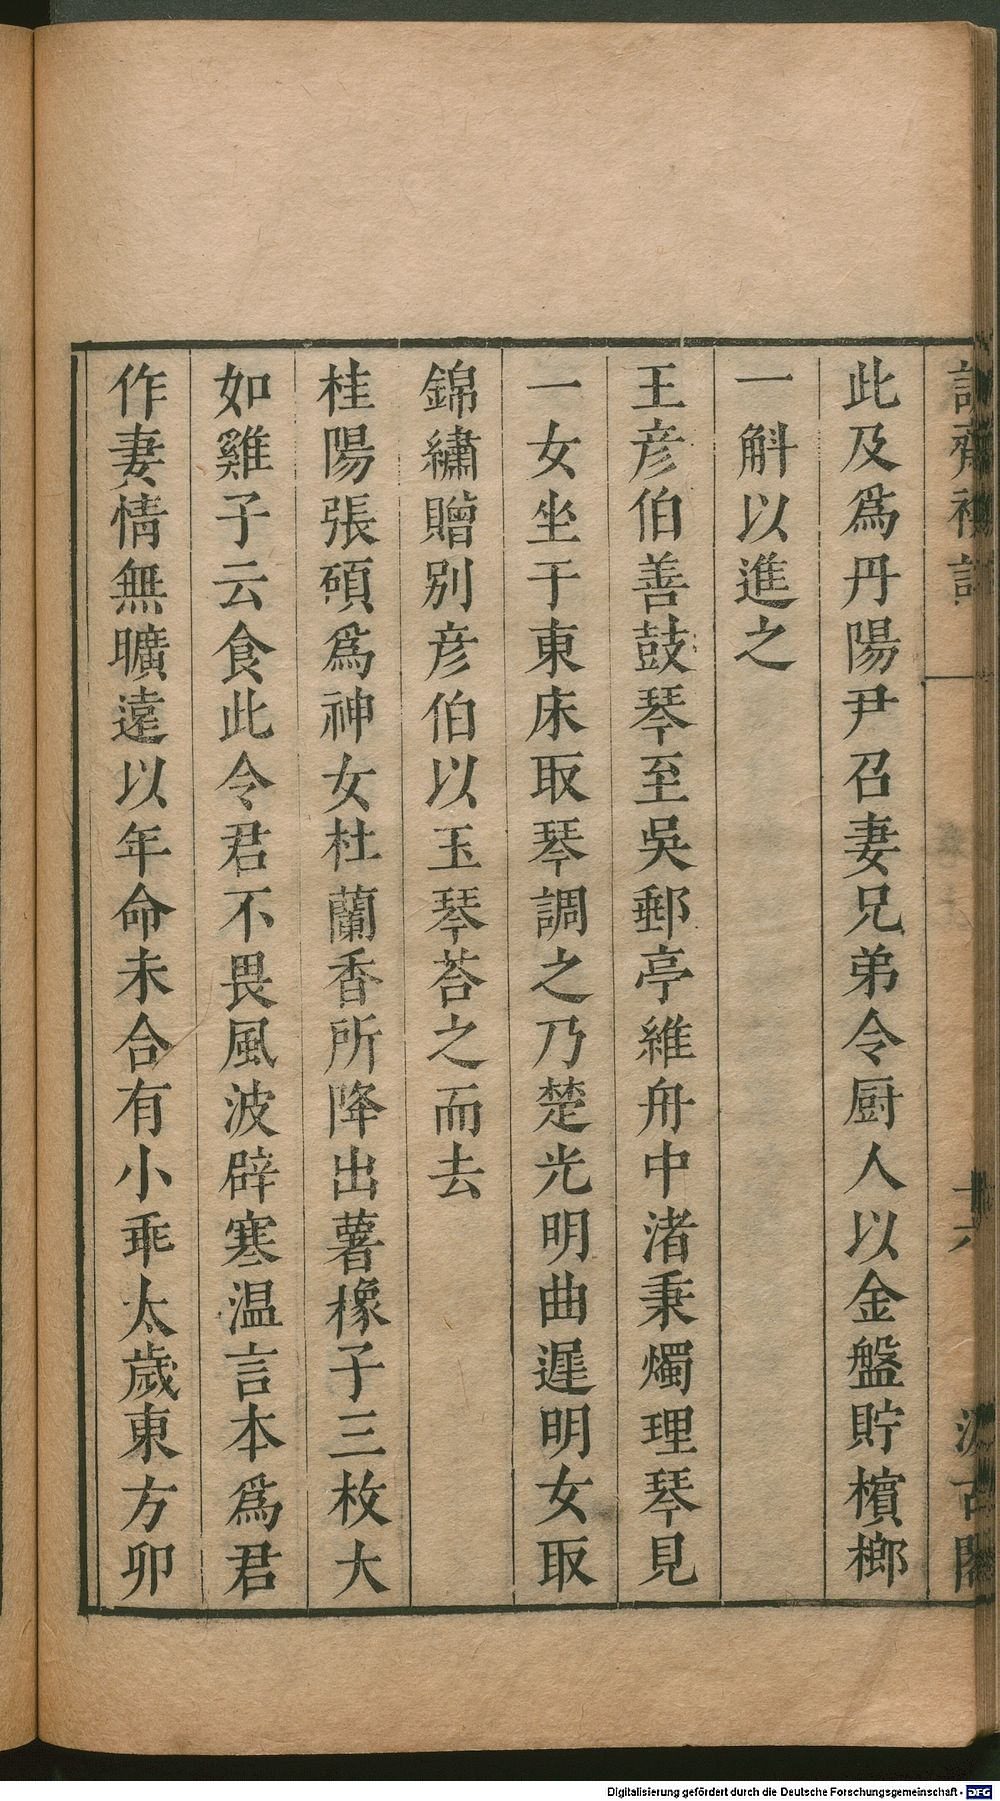 此及爲丹陽尹召妻兄弟令厨人以金盤貯檳榔
一斛以進之
王彦伯善鼓琴至吳郵亭維舟中渚秉燭理琴見
一女坐于東床取琴調之乃楚光明曲遲明女取
錦繡贈别彦伯以玉琴荅之而去
桂陽張碩爲神女杜蘭香所降出薯橡子三枚大
如雞子云食此令君不畏風波辟寒温言本爲君
作妻情無曠遠以年命未合有小乖太歲東方卯
Digitalisierung gefördert durch die Deutsche Forschungsgemeinschaft - DFG